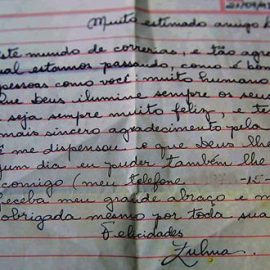 21/09/
Muito estimado amigo
este mundo de correrias, e tão agre
qual estamos passando, como é b
pessoas como você: muito humano
Que Deus ilumine sempre os seus
seja sempre muito feliz, e te
mais sincero agradecimento pela
me dispensou. o que Deus lhe
um dia eu puder também lhe
comigo (meu telefone -15-
Receba meu grande abraço e m
obrigada mesmo por toda sua
Felicidades
Zulma.